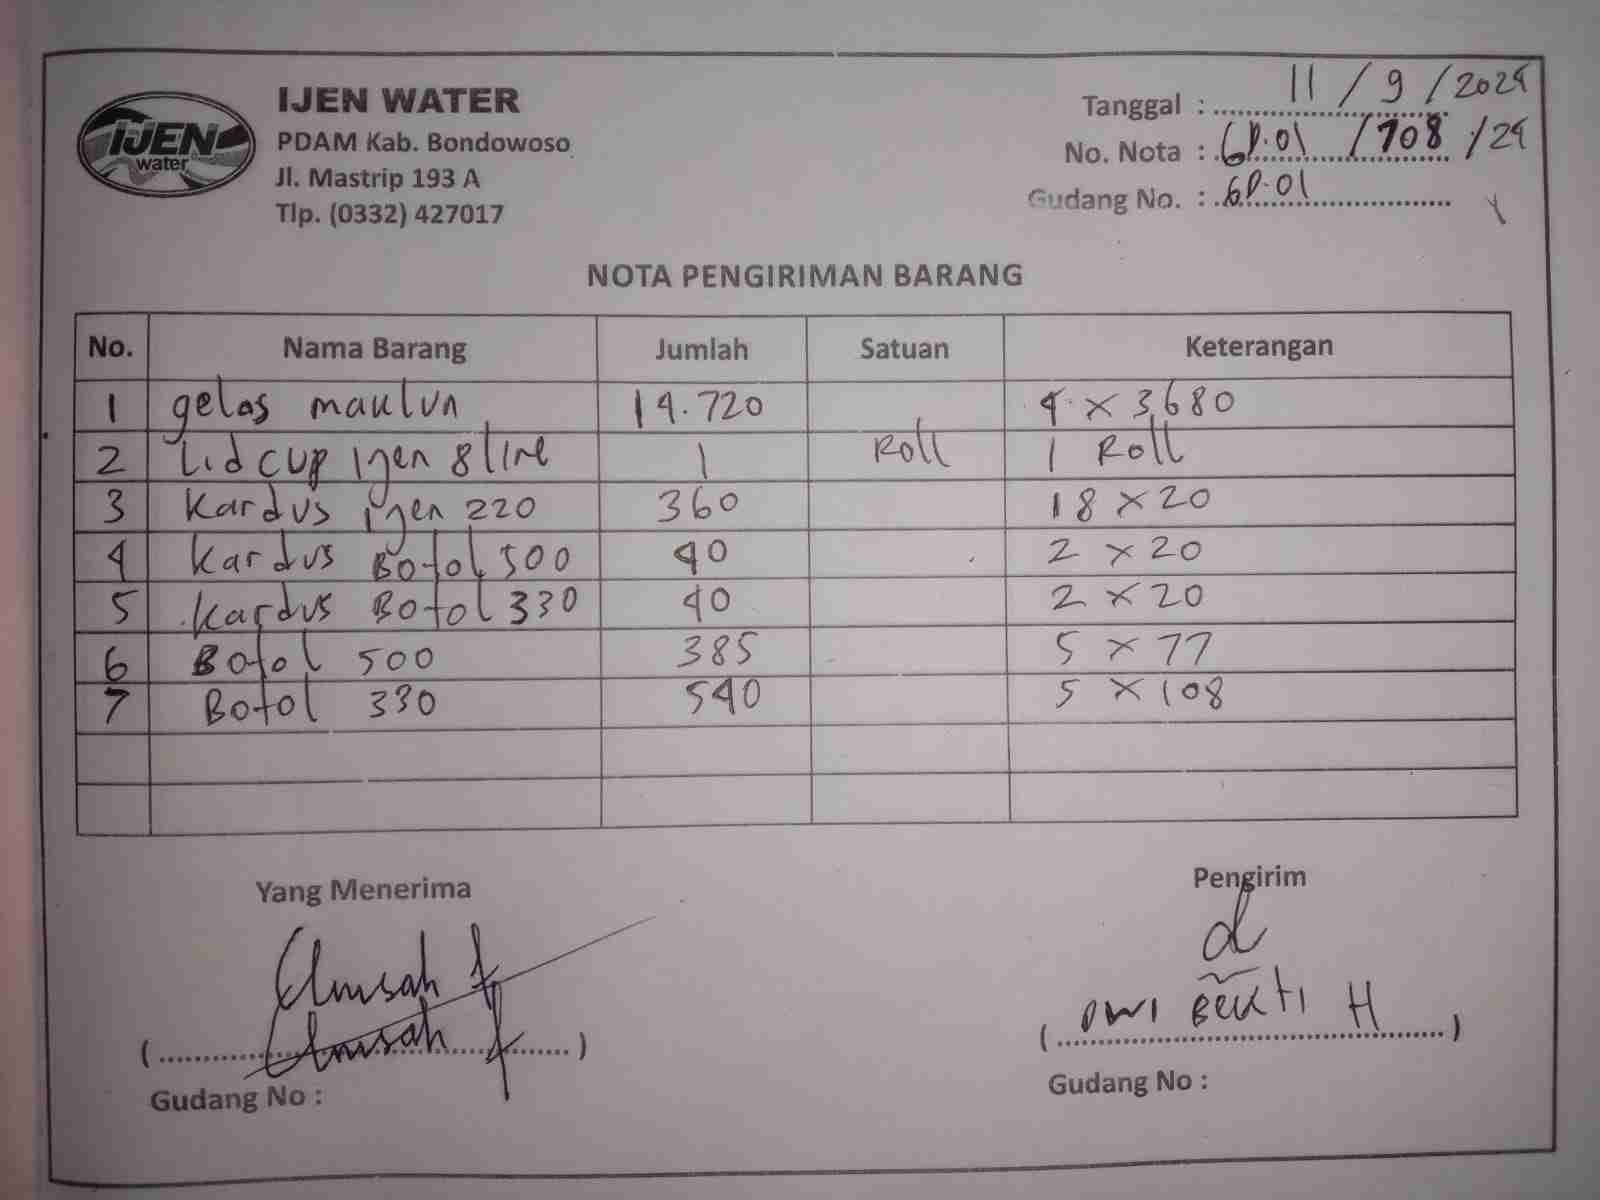 IJEN
water
IJEN WATER
PDAM Kab. Bondowoso
Jl. Mastrip 193 A
Tlp. (0332) 427017
Tanggal : 11 / 9 / 2024
No. Nota : GD.01 / 708 / 24
Gudang No. : GD.01
NOTA PENGIRIMAN BARANG
No. Nama Barang Jumlah Satuan Keterangan
1 gelas maklun 14.720 4 x 3.680
2 Lid cup ijen 8 line 1 Roll 1 Roll
3 Kardus ijen 220 360 18 x 20
4 Kardus Botol 500 40 2 x 20
5 Kardus Botol 330 40 2 x 20
6 Botol 500 385 5 x 77
7 Botol 330 540 5 x 108
Yang Menerima
Pengirim
( )
( DWI BEKTI H )
Gudang No :
Gudang No :